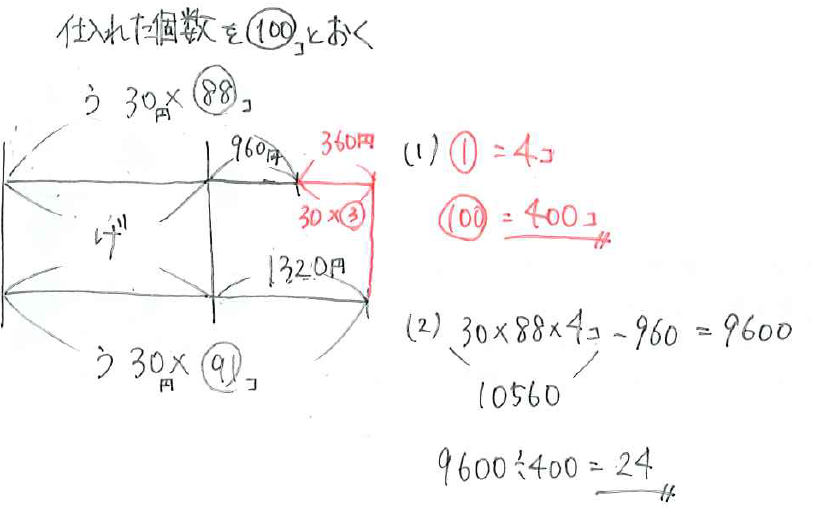 仕入れた個数を⑩⓪コとおく
う 30円×(88)コ
960円 360円
30×③
げ
1320円
う 30円×(91)コ
(1) ①=4コ
(100)=400コ
(2) 30×88×4コ-960=9600
10560
9600÷400=24